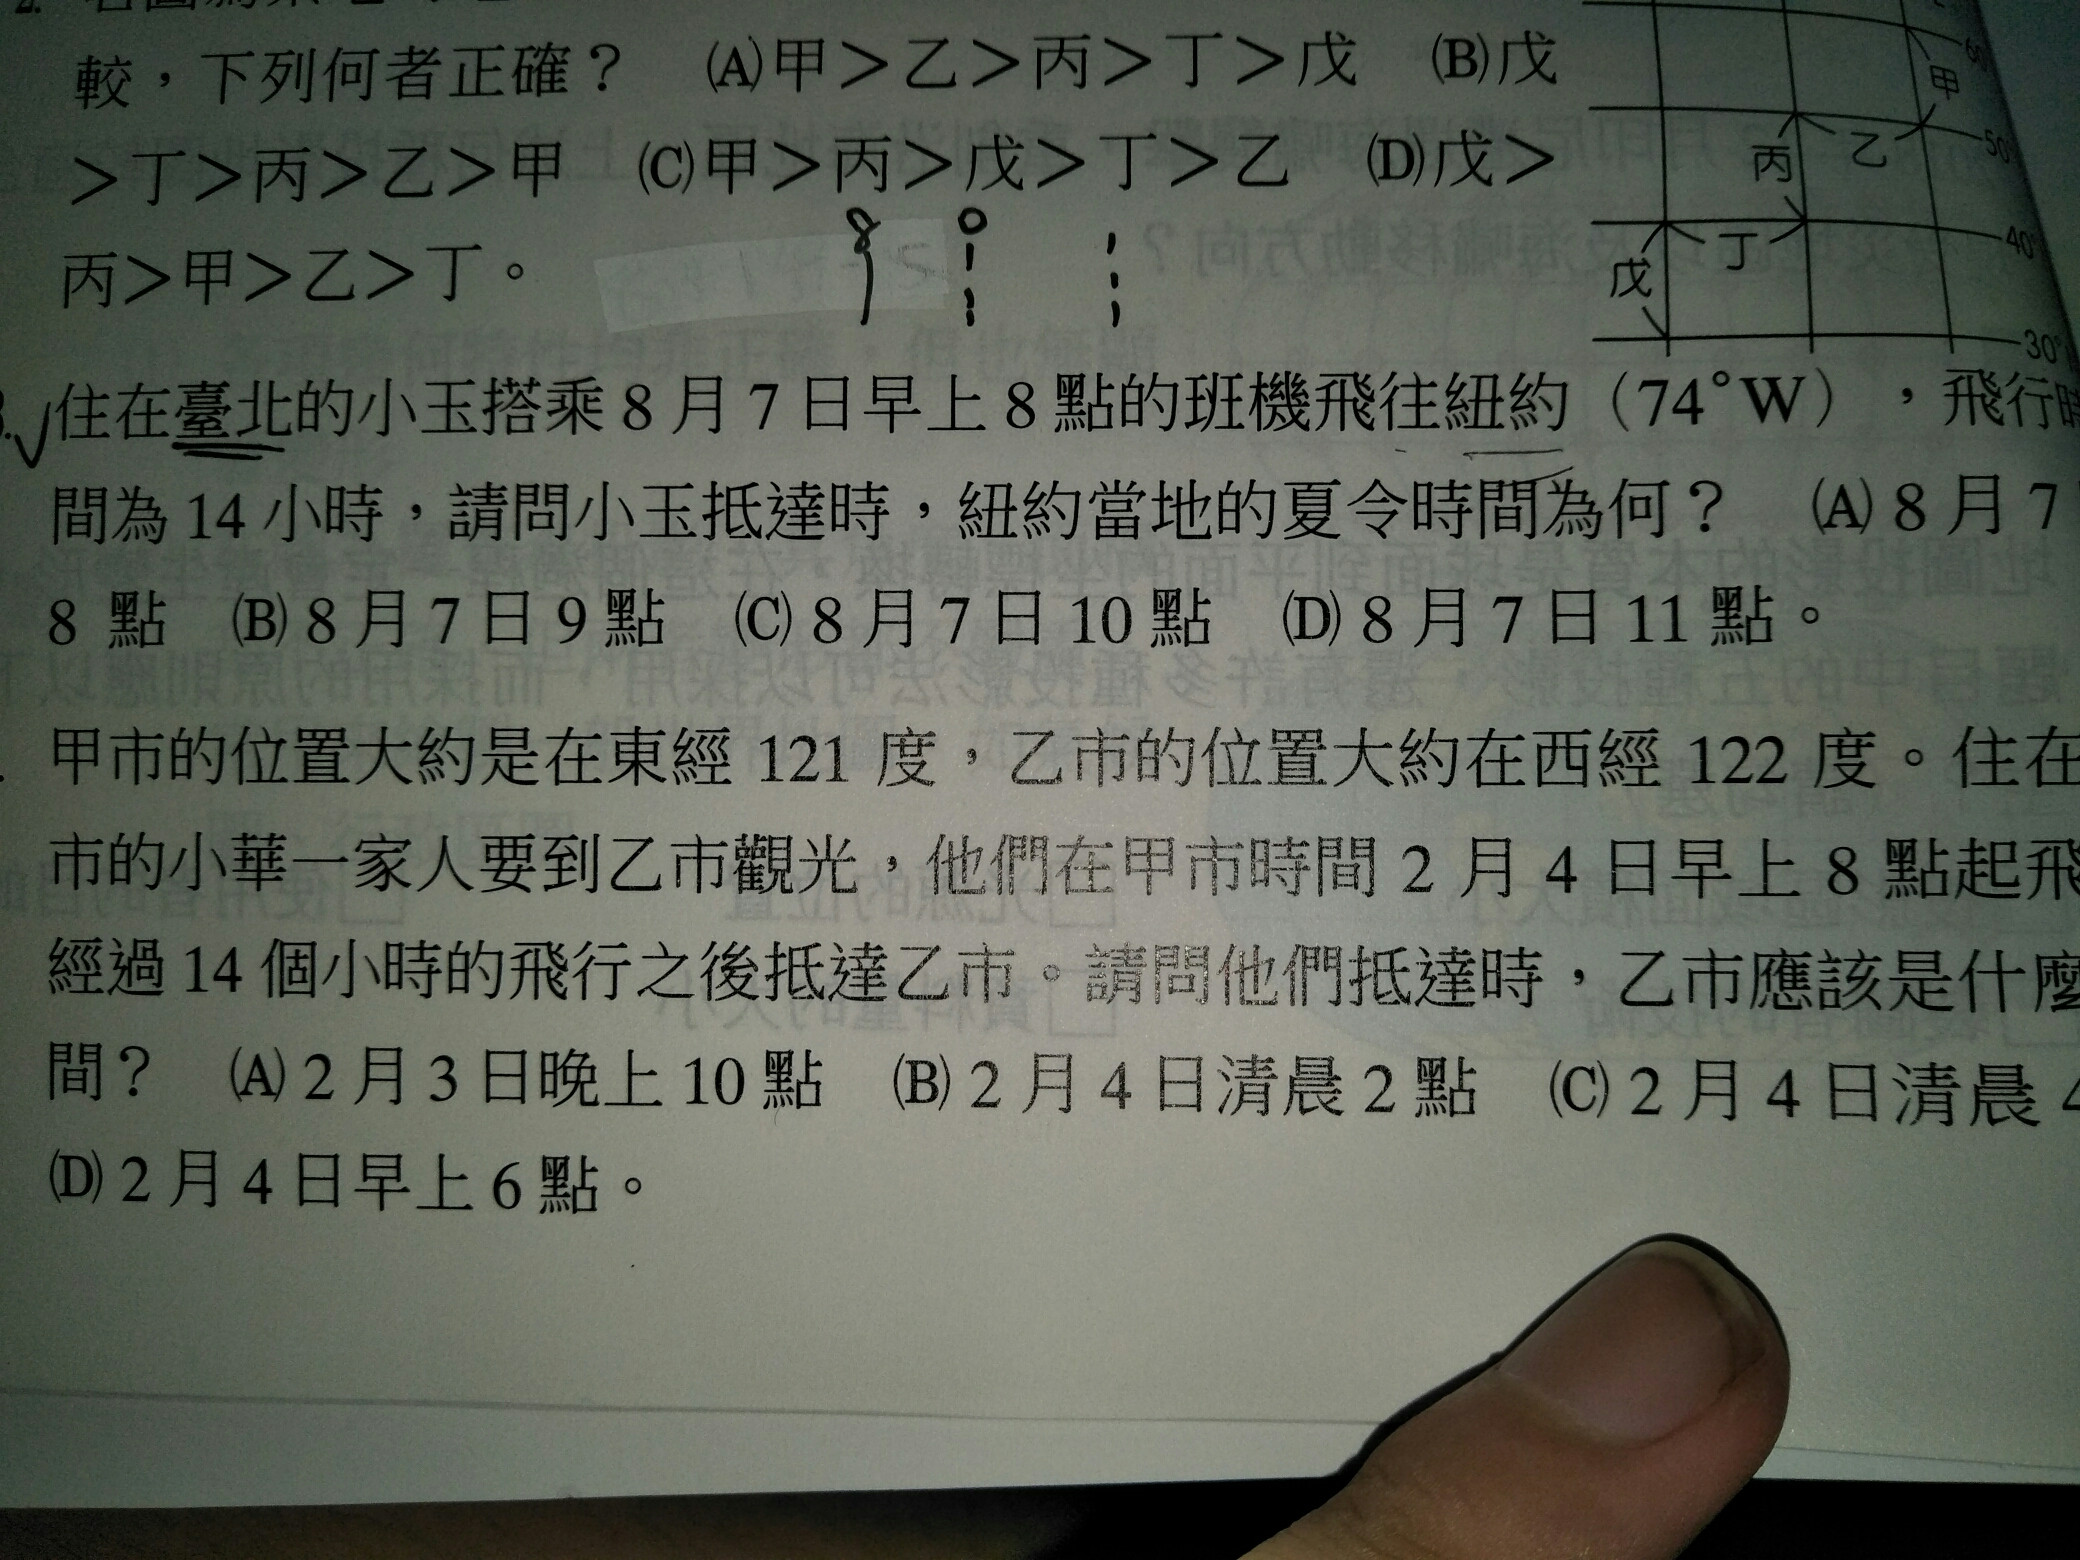 較，下列何者正確？ (A)甲＞乙＞丙＞丁＞戊 (B)戊
＞丁＞丙＞乙＞甲 (C)甲＞丙＞戊＞丁＞乙 (D)戊＞
丙＞甲＞乙＞丁。
甲
乙
丙
丁
戊
50°
40°
30°
住在臺北的小玉搭乘 8 月 7 日早上 8 點的班機飛往紐約（74°W），飛行時
間為 14 小時，請問小玉抵達時，紐約當地的夏令時間為何？ (A) 8 月 7
8 點 (B) 8 月 7 日 9 點 (C) 8 月 7 日 10 點 (D) 8 月 7 日 11 點。
甲市的位置大約是在東經 121 度，乙市的位置大約在西經 122 度。住在
市的小華一家人要到乙市觀光，他們在甲市時間 2 月 4 日早上 8 點起飛
經過 14 個小時的飛行之後抵達乙市。請問他們抵達時，乙市應該是什麼
間？ (A) 2 月 3 日晚上 10 點 (B) 2 月 4 日清晨 2 點 (C) 2 月 4 日清晨 4
(D) 2 月 4 日早上 6 點。